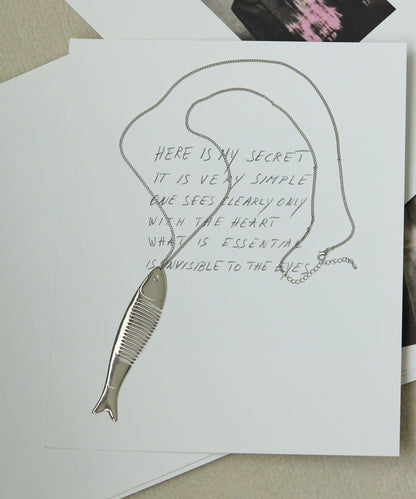 HERE IS MY SECRET
IT IS VERY SIMPLE
ONE SEES CLEARLY ONLY
WITH THE HEART
WHAT IS ESSENTIAL
IS INVISIBLE TO THE EYES